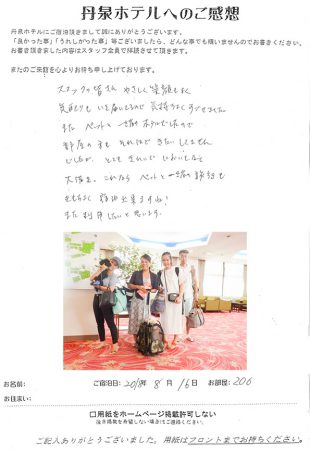 丹泉ホテルへのご感想
丹泉ホテルにご宿泊頂きまして誠にありがとうございます。
「良かった事」「うれしかった事」等ございましたら、どんな事でも構いませんのでお書きください。
お書き頂きました内容はスタッフ全員で拝読させて頂きます。
またのご来館を心よりお待ち申し上げております。
スタッフの皆さん やさしく笑顔もよく
気配りも いき届いてるので 気持ちよく すごせました
また ペットと一緒の ホテルでしたので
部屋の
それほど きたいしてません
でしたが、とても きれいで におい
大満足。これなら ペットと一緒の
また 利用したいと思います。
お名前:
ご宿泊日: 2018年 8月 16日 お部屋: 206
お住まい:
□用紙をホームページ掲載許可しない
ご記入ありがとうございました。用紙はフロントまでお持ちください。